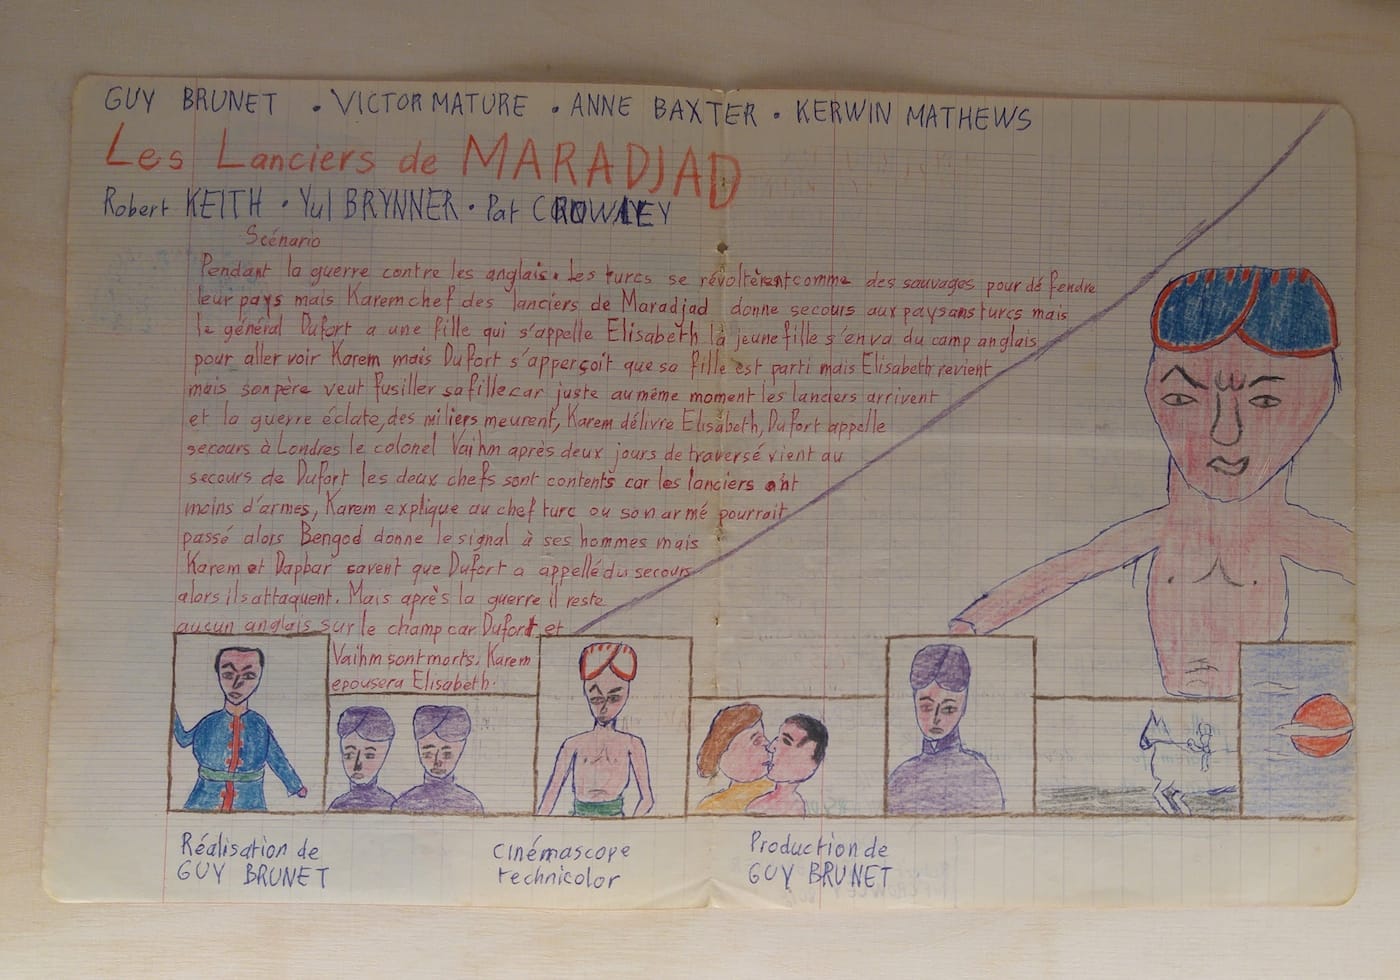 GUY BRUNET . VICTOR MATURE . ANNE BAXTER . KERWIN MATHEWS
Les Lanciers de MARADJAD
Robert KEITH . Yul BRYNNER . Pat CROWLEY
Scénario
Pendant la guerre contre les anglais. Les turcs se révoltèrent comme des sauvages pour défendre
leur pays mais Karem chef des lanciers de Maradjad donne secours aux paysans turcs mais
le général Dufort a une fille qui s'appelle Elisabeth la jeune fille s'en va du camp anglais
pour aller voir Karem mais Dufort s'apperçoit que sa fille est parti mais Elisabeth revient
mais son père veut fusiller sa fille car juste au même moment les lanciers arrivent
et la guerre éclate, des miliers meurent, Karem délivre Elisabeth, Dufort appelle
secours à Londres le colonel Vaihm après deux jours de traversé vient au
secours de Dufort les deux chefs sont contents car les lanciers ont
moins d'armes, Karem explique au chef turc ou son armé pourrait
passé alors Bengod donne le signal à ses hommes mais
Karem et Dapbar savent que Dufort a appellé du secours
alors ils attaquent. Mais après la guerre il reste
aucun anglais sur le champ car Dufort et
Vaihm sont morts. Karem
epousera Elisabeth.
Réalisation de
GUY BRUNET
cinémascope
technicolor
Production de
GUY BRUNET